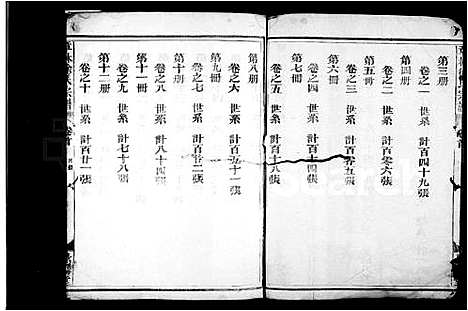 第三册
卷之一 世系 計百四十九張
第四册
卷之二 世系 計百零六張
第五册
卷之三 世系 計百零五張
第六册
卷之四 世系 計百十四張
第七册
卷之五 世系 計百十八張
第八册
卷之六 世系 計百五十一張
第九册
卷之七 世系 計百零二張
第十册
卷之八 世系 計八十四張
第十一册
卷之九 世系 計七十八張
第十二册
卷之十 世系 計百廿一張
卷首